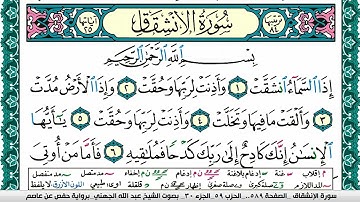 سُورَةُ الانشِقَاقِ
بِسْمِ اللَّهِ الرَّحْمَٰنِ الرَّحِيمِ
إِذَا ٱلسَّمَآءُ ٱنشَقَّتْ ١ وَأَذِنَتْ لِرَبِّهَا وَحُقَّتْ ٢ وَإِذَا ٱلْأَرْضُ مُدَّتْ
٣ وَأَلْقَتْ مَا فِيهَا وَتَخَلَّتْ ٤ وَأَذِنَتْ لِرَبِّهَا وَحُقَّتْ ٥ يَٰٓأَيُّهَا
ٱلْإِنسَٰنُ إِنَّكَ كَادِحٌ إِلَىٰ رَبِّكَ كَدْحًا فَمُلَٰقِيهِ ٦ فَأَمَّا مَنْ أُوتِىَ
سورة الإنشقاق، الصفحة ٥٨٩، الحزب ٥٩ الجزء ٣٠، بصوت الشيخ عبد الله الجهني برواية حفص عن عاصم